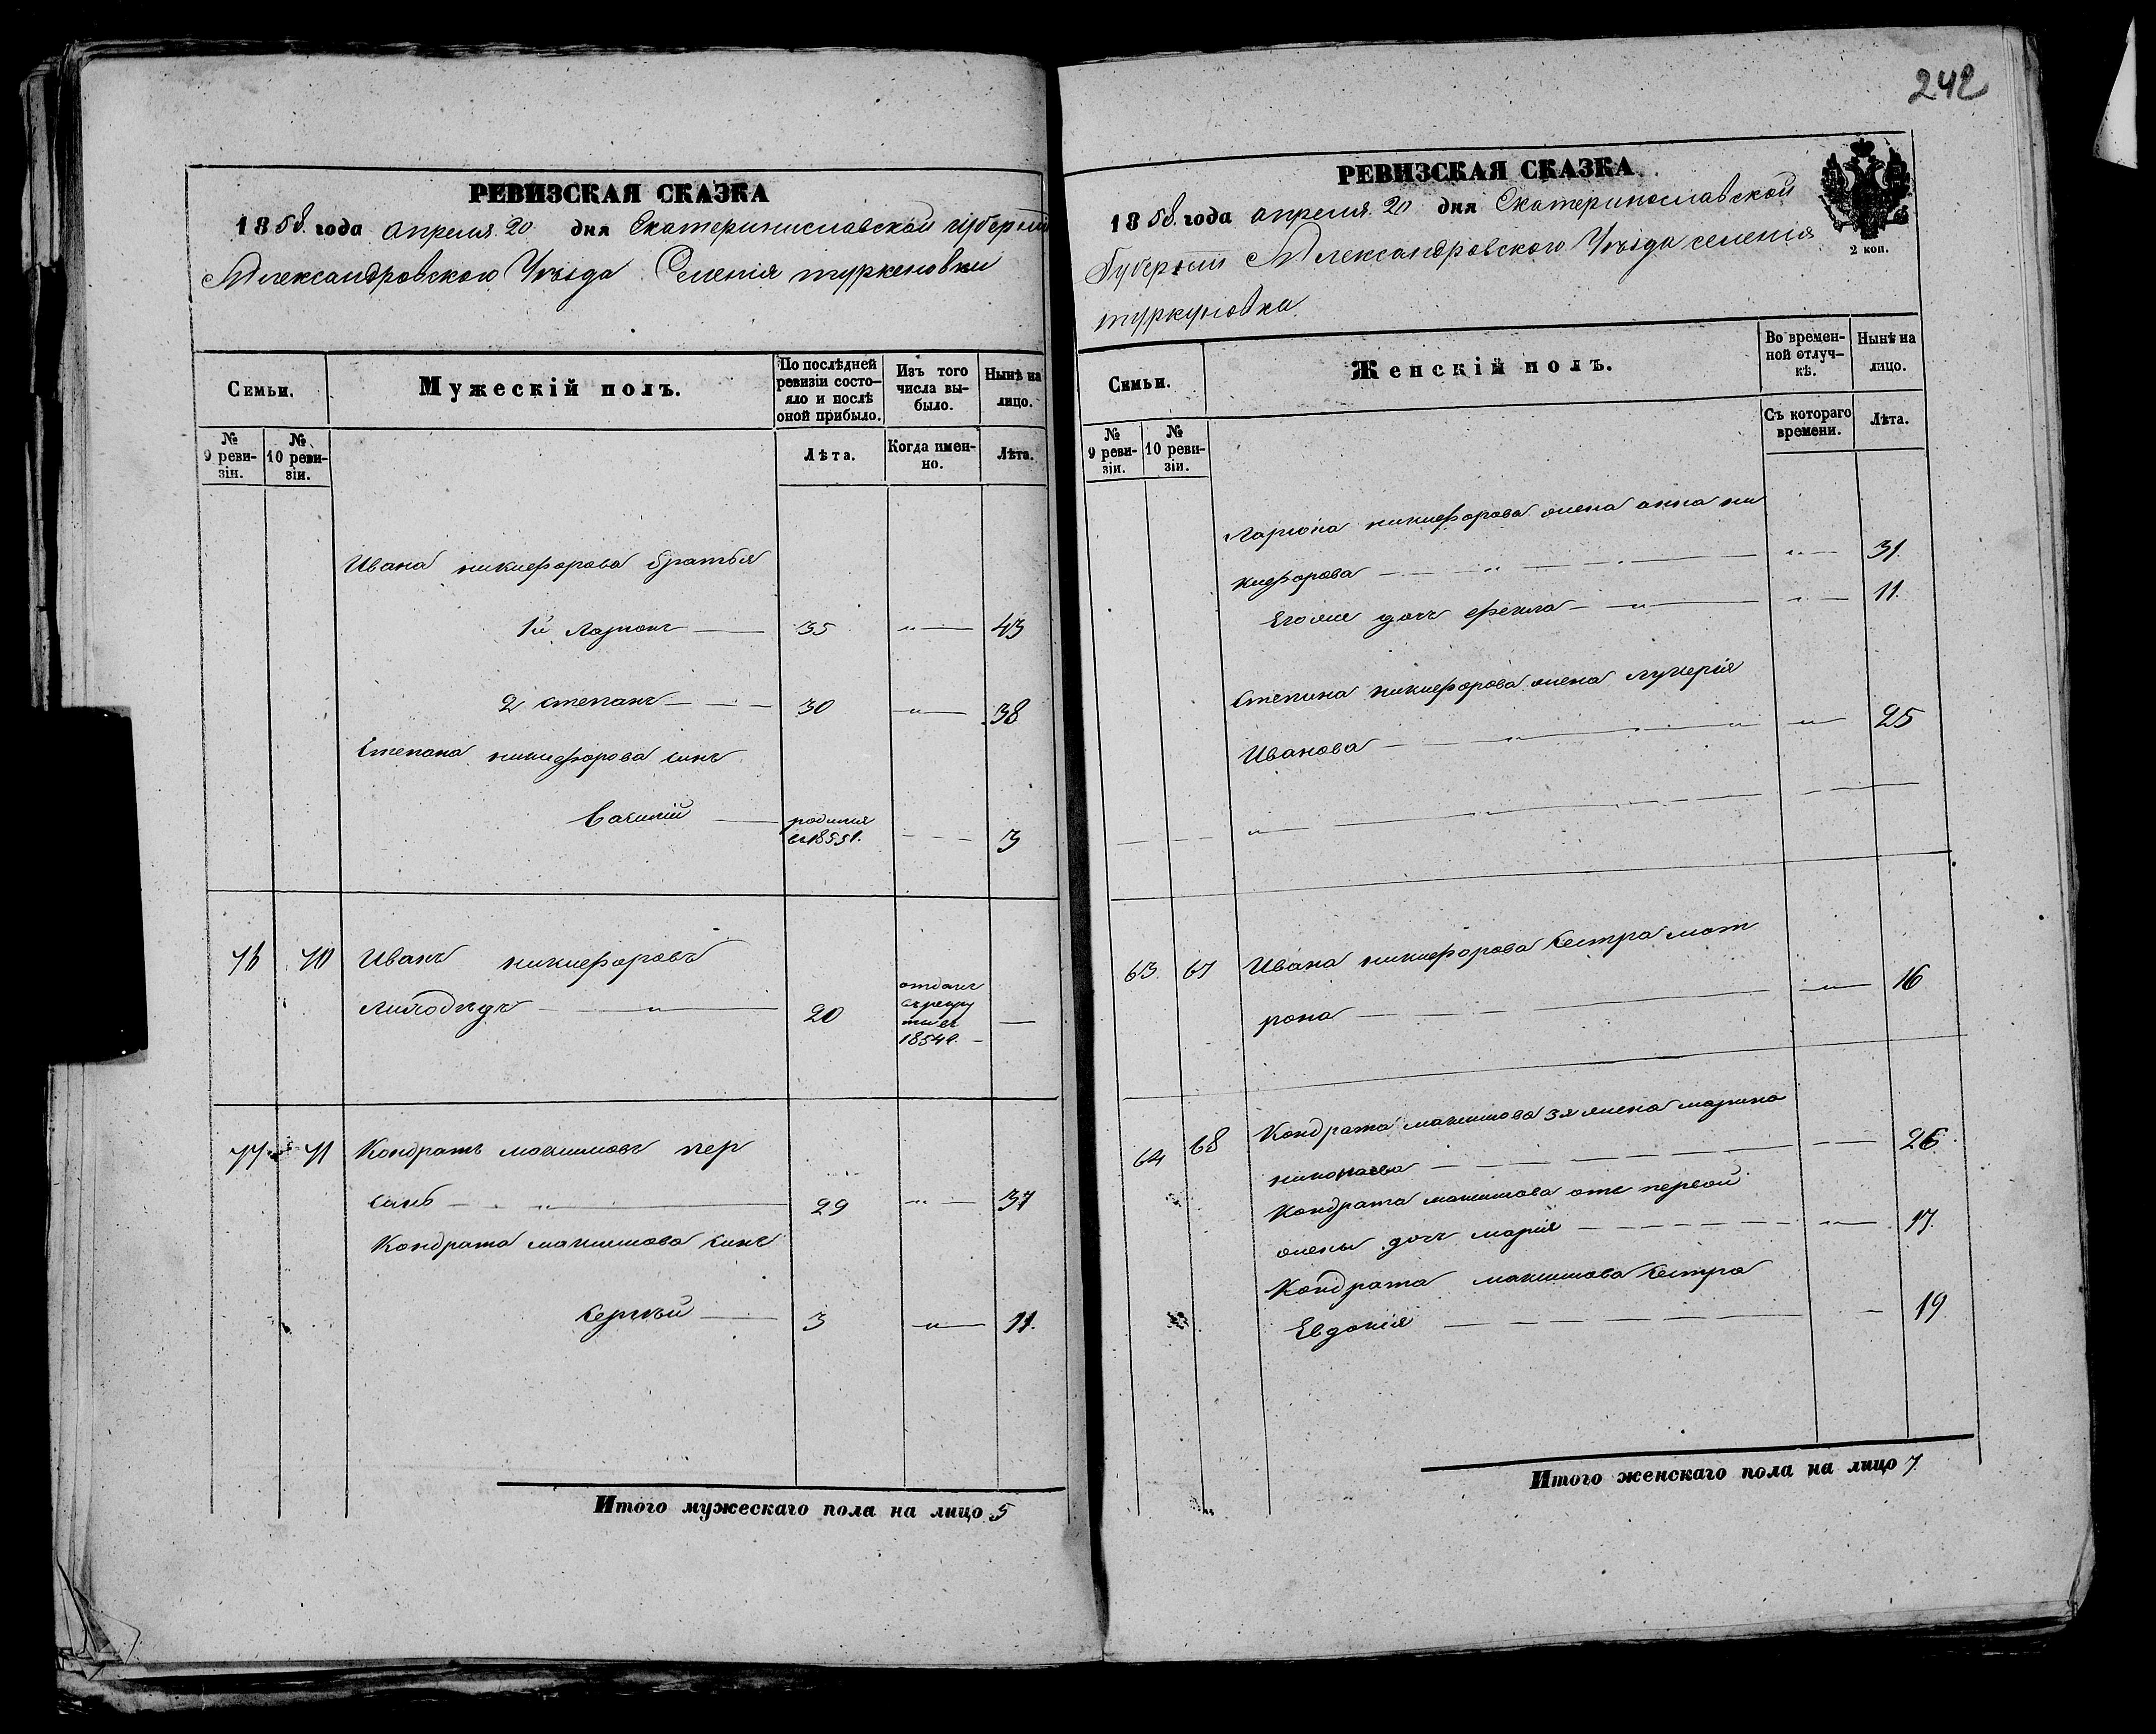 242
РЕВИЗСКАЯ СКАЗКА
1858 года апреля 20 дня Екатеринославской губерніи
Александровского Уѣзда Селенія туркеновки
Семьи.
Мужескій полъ.
По послѣдней ревизіи состо-
яло и послѣ оной прибыло.
Изъ того числа вы-
было.
Нынѣ на лицо.
№ 9 реви-
зіи.
№ 10 реви-
зіи.
Лѣта.
Когда имен-
но.
Лѣта.
Ивана никифорова братья
1й Ларионъ 35 43
2 степанъ 30 38
Степана никифорова синъ
Василій родился въ 1855г. 3
76 70 Иванъ никифоровъ
20 отданъ въ рекру
ты въ
1854г.
77 71 Кондратъ максимовъ пер
синъ 29 37
Кондрата максимова синъ
Сергѣй 3 11.
Итого мужескаго пола на лицо 5
РЕВИЗСКАЯ СКАЗКА
1858 года апреля 20 дня Екатеринославской
Губерніи Александровского Уѣзда селенія
туркуновки.
2 коп.
Семьи.
Женскій полъ.
Во времен-
ной отлуч-
кѣ.
Нынѣ на лицо.
№ 9 реви-
зіи.
№ 10 реви-
зіи.
Съ котораго времени.
Лѣта.
Лариона никифорова жена анна ни
кифорова 31.
Егоже дочъ фекла 11.
Степана никифорова жена лукерія
Иванова 25
63. 67 Ивана никифорова Сестра мот
рона 16
64 68 Кондрата максимова 3я жена марина
николаева 26.
Кондрата максимова отъ первой
жены дочъ марія 17.
Кондрата максимова Сестра
Евдокія 19
Итого женскаго пола на лицо 7